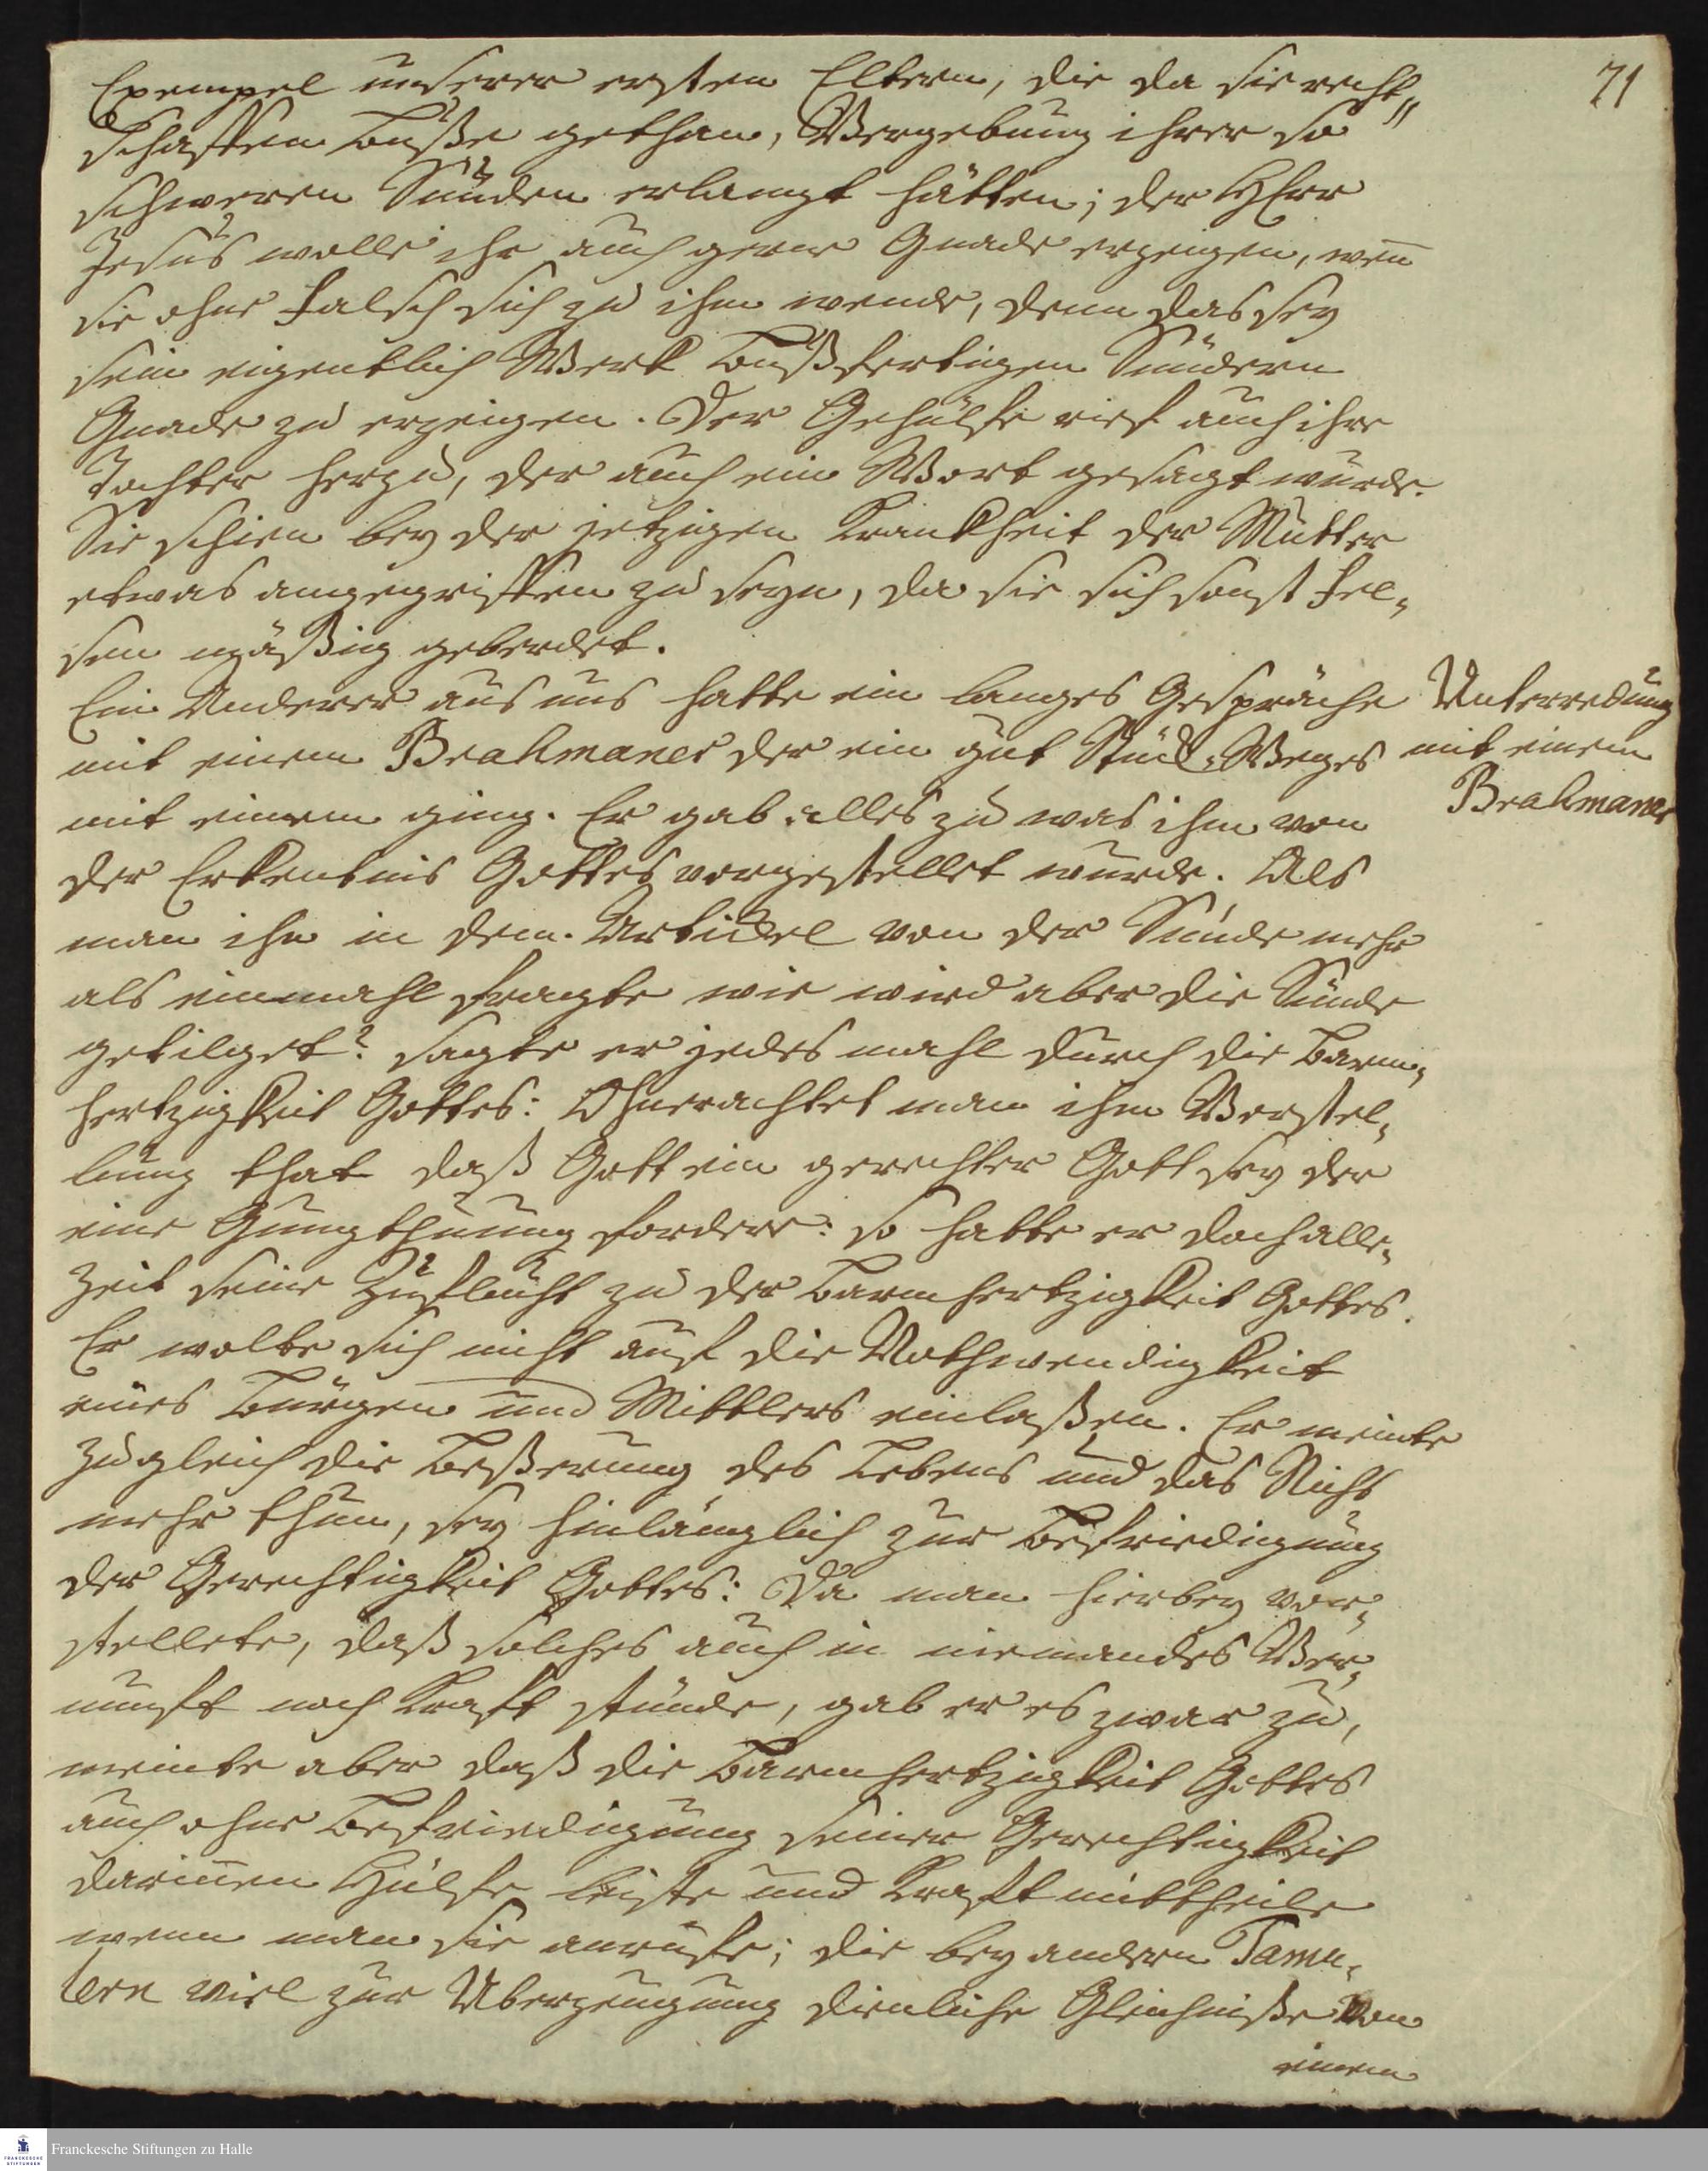 71
Exempel unserer ersten Eltern, die da sie recht„
schaffen Buße gethan, Vergebung ihrer so
schweren Sünden erlangt hätten; der HErr
Jesus wolle ihr auch gerne Gnade erzeigen, weñ
sie ohne Falsch sich zu ihm wende, denn das sey
sein eigentlich Werk bußfertigen Sündern
Gnade zu erzeigen. Der Gehülfe rief auch ihre
Tochter herzu, der auch ein Wort gesagt wurde.
Sie schien bey der jetzigen Krankheit der Mutter
etwas angegriffen zu seyn, da sie sich sonst Fel„
sen mäßig geberdet.
Ein Anderer aus uns hatte ein langes Gespräche
mit einem Brahmaner der ein gut Stück Weges
mit einem ging. Er gab alles zu was ihm von
der Erkentnis Gottes vorgestellet wurde. Als
man ihn in dem Artickel von der Sünde mehr
als einmahl fragte wie wird aber die Sünde
getilget? sagte er jedes mahl durch die Barm„
hertzigkeit Gottes: Ohnerachtet man ihm Vorstel„
lung that daß Gott ein gerechter Gott sey der
eine Gnugthuung fordere: so hatte er doch alle„
zeit seine Zuflucht zu der Barmhertzigkeit Gottes.
Er wolte sich nicht auf die Nothwendigkeit
eines Bürgen und Mittlers einlaßen. Er meinte
zugleich die Beßerung des Lebens und das Nicht
mehr thun, sey hinlänglich zur Befriedigung
der Gerechtigkeit Gottes: Da man hierbey vor„
stellete, daß solches auch in niemandes Ver„
nunft noch Kraft stünde, gab er es zwar zu,
meinte aber daß die Barmhertzigkeit Gottes
auch ohne Befriedigung seiner Gerechtigkeit
dariñen Hülfe leiste und Kraft mittheile
wenn man sie anrufe; die bey andern Tamu„
lern viel zur Uberzeugung dienliche Gleichniße von
einem
Unterredung
mit einem
Brahmaner
Franckesche Stiftungen zu Halle
FRANCKESCHE
STIFTUNGEN